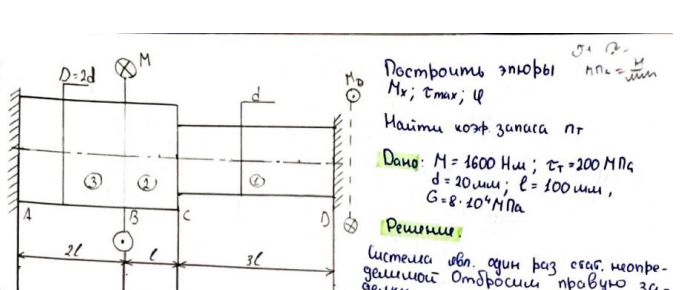 D=2d
M
d
M_D
③
②
①
A
B
C
D
2l
l
3l
Построить эпюры
Mx; τmax; φ
МПа = Н/мм
Найти коэф. запаса nт
Дано: M = 1600 Нм; τт = 200 МПа
d = 20 мм; l = 100 мм,
G = 8·10⁴ МПа
Решение.
Система явл. один раз стат. неопре-
делимой Отбросим правую за-